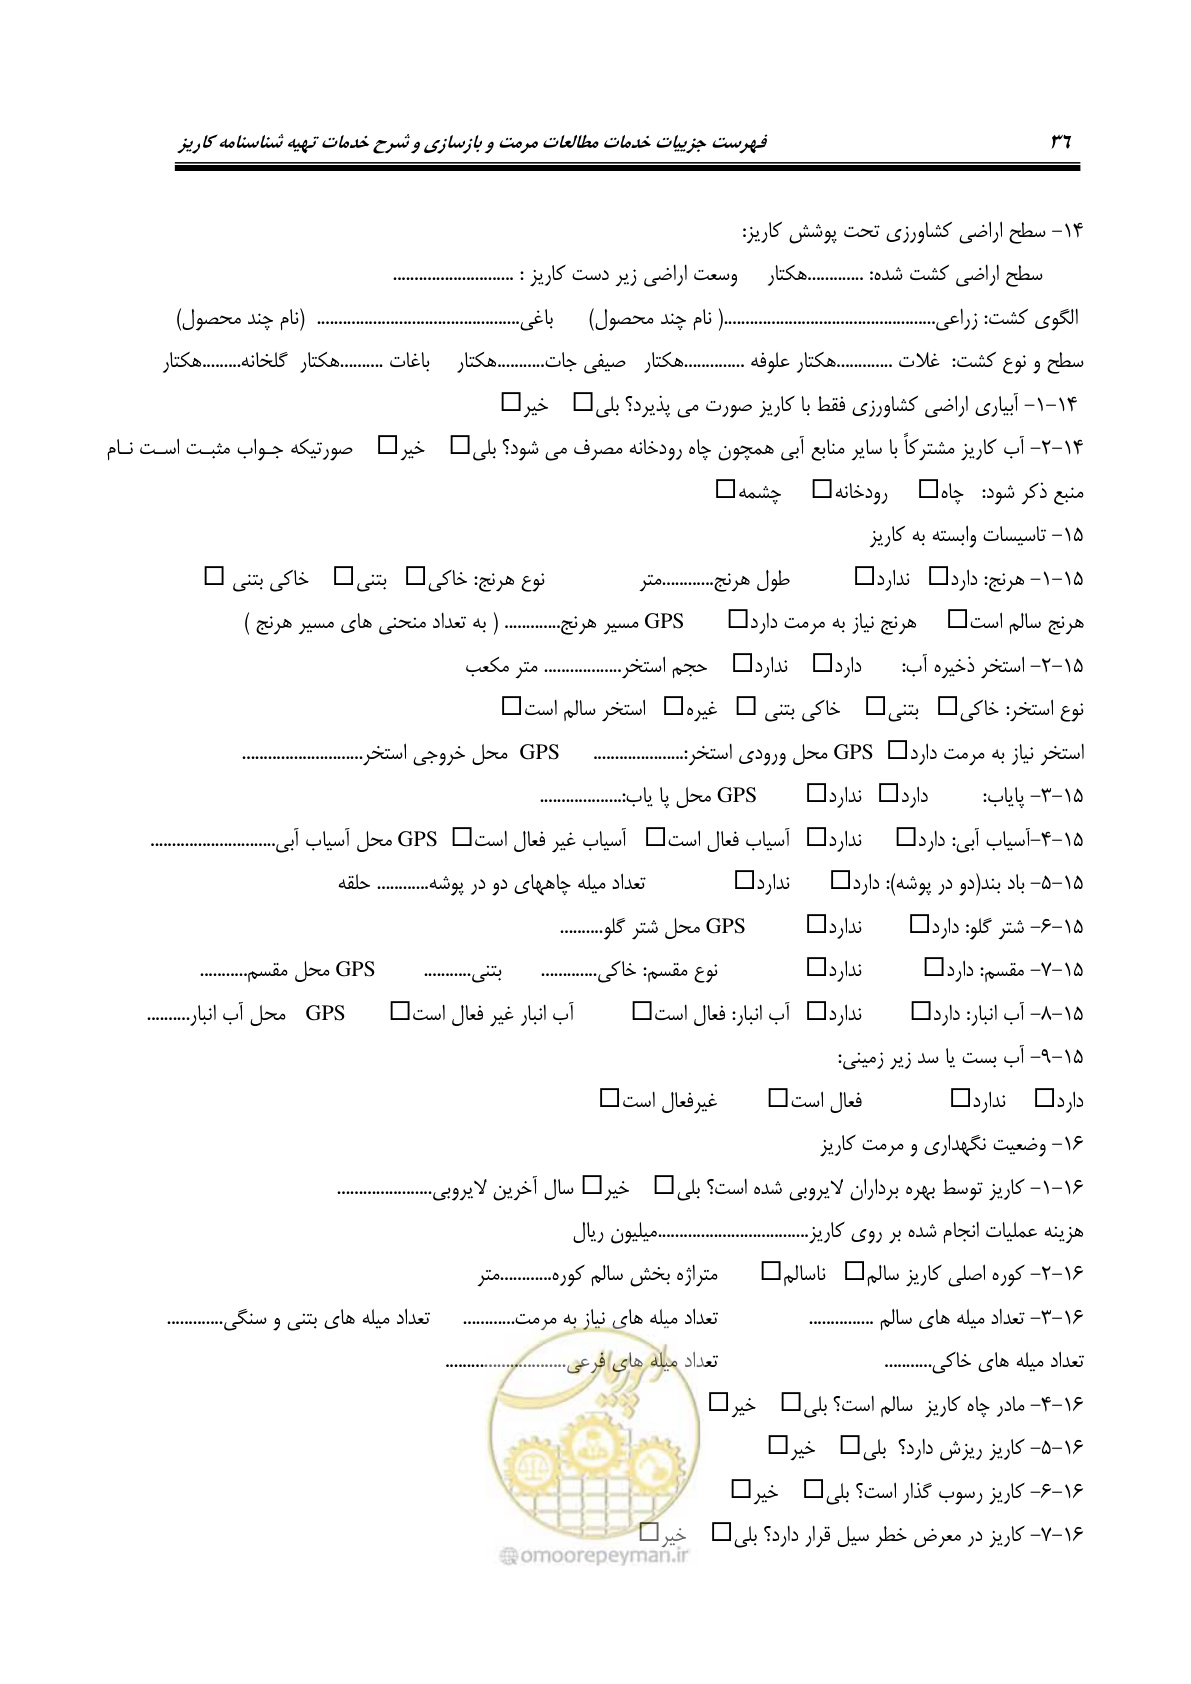 ۳۶ فهرست جزییات خدمات مطالعات مرمت و بازسازی و شرح خدمات تهیه شناسنامه کاریز
۱۴- سطح اراضی کشاورزی تحت پوشش کاریز:
سطح اراضی کشت شده: .............هکتار وسعت اراضی زیر دست کاریز : ............................
الگوی کشت: زراعی.................................................( نام چند محصول) باغی............................................... (نام چند محصول)
سطح و نوع کشت: غلات .............هکتار علوفه ..............هکتار صیفی جات...........هکتار باغات ..........هکتار گلخانه.........هکتار
۱۴-۱- آبیاری اراضی کشاورزی فقط با کاریز صورت می پذیرد؟ بلی□ خیر□
۱۴-۲- آب کاریز مشترکاً با سایر منابع آبی همچون چاه رودخانه مصرف می شود؟ بلی□ خیر□ صورتیکه جـواب مثبـت اسـت نـام
منبع ذکر شود: چاه□ رودخانه□ چشمه□
۱۵- تاسیسات وابسته به کاریز
۱۵-۱- هرنج: دارد□ ندارد□ طول هرنج............متر نوع هرنج: خاکی□ بتنی□ خاکی بتنی □
هرنج سالم است□ هرنج نیاز به مرمت دارد□ GPS مسیر هرنج............. ( به تعداد منحنی های مسیر هرنج )
۱۵-۲- استخر ذخیره آب: دارد□ ندارد□ حجم استخر.................. متر مکعب
نوع استخر: خاکی□ بتنی□ خاکی بتنی □ غیره□ استخر سالم است□
استخر نیاز به مرمت دارد□ GPS محل ورودی استخر:..................... GPS محل خروجی استخر............................
۱۵-۳- پایاب: دارد□ ندارد□ GPS محل پا یاب:...................
۱۵-۴-آسیاب آبی: دارد□ ندارد□ آسیاب فعال است□ آسیاب غیر فعال است□ GPS محل آسیاب آبی.............................
۱۵-۵- باد بند(دو در پوشه): دارد□ ندارد□ تعداد میله چاههای دو در پوشه............ حلقه
۱۵-۶- شتر گلو: دارد□ ندارد□ GPS محل شتر گلو..........
۱۵-۷- مقسم: دارد□ ندارد□ نوع مقسم: خاکی............. بتنی........... GPS محل مقسم...........
۱۵-۸- آب انبار: دارد□ ندارد□ آب انبار: فعال است□ آب انبار غیر فعال است□ GPS محل آب انبار..........
۱۵-۹- آب بست یا سد زیر زمینی:
دارد□ ندارد□ فعال است□ غیرفعال است□
۱۶- وضعیت نگهداری و مرمت کاریز
۱۶-۱- کاریز توسط بهره برداران لایروبی شده است؟ بلی□ خیر□ سال آخرین لایروبی......................
هزینه عملیات انجام شده بر روی کاریز...................................میلیون ریال
۱۶-۲- کوره اصلی کاریز سالم□ ناسالم□ متراژه بخش سالم کوره............متر
۱۶-۳- تعداد میله های سالم ............... تعداد میله های نیاز به مرمت............ تعداد میله های بتنی و سنگی.............
تعداد میله های خاکی........... تعداد میله های فرعی............................
۱۶-۴- مادر چاه کاریز سالم است؟ بلی□ خیر□
۱۶-۵- کاریز ریزش دارد؟ بلی□ خیر□
۱۶-۶- کاریز رسوب گذار است؟ بلی□ خیر□
۱۶-۷- کاریز در معرض خطر سیل قرار دارد؟ بلی□ خیر□
امورپیمان
@omoorepeyman.ir